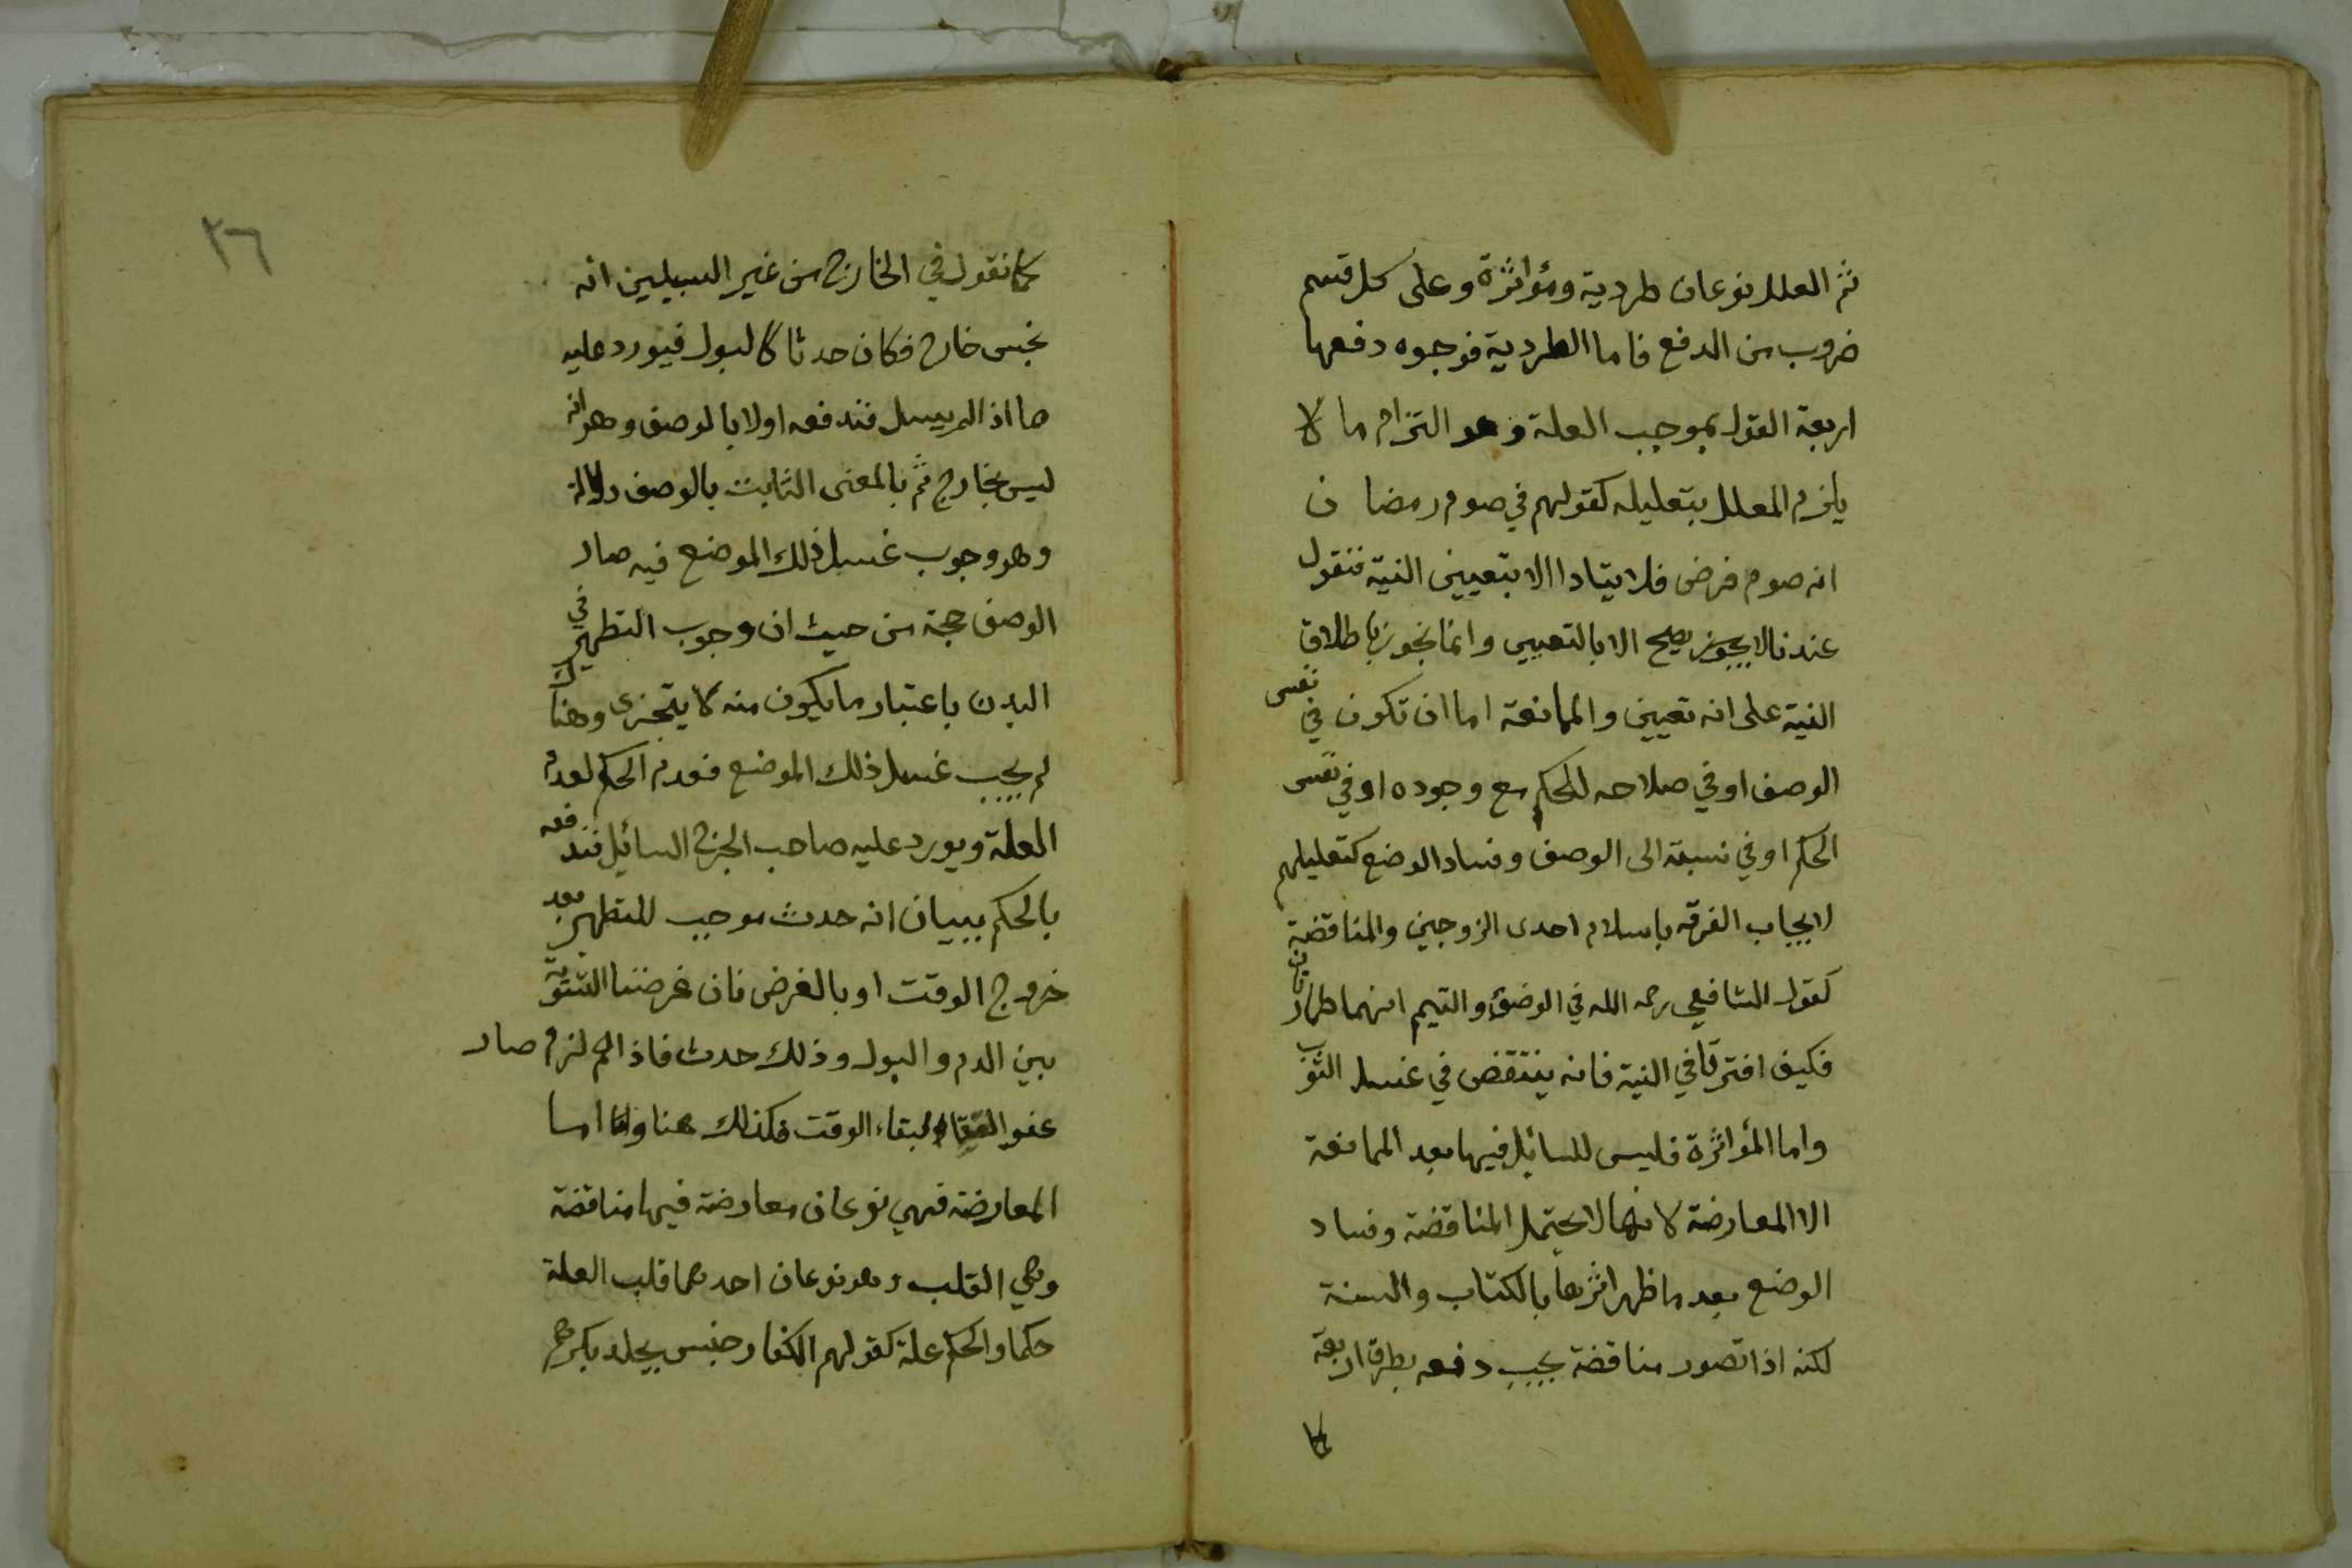 ثم العلل نوعان طردية ومؤاثرة وعلى كل قسم
ضروب من الدفع فاما الطردية فوجوه دفعها
اربعة القول بموجب العلة وهو التزام ما لا
يلزم المعلل بتعليله كقولهم في صوم رمضان
انه صوم فرض فلا يتادا الا بتعيين النية فنقول
عندنا لا يجوز يصح الا بالتعيين وانما نجوز باطلاق
النية على انه تعيين والممانعة اما ان تكون في نفس
الوصف او في صلاحه للحكم مع وجوده او في نفس
الحكم او في نسبة الى الوصف وفساد الوضع كتعليلهم
لايجاب الفرقه باسلام احدى الزوجين والمناقضة
كقول الشافعي رحمه الله في الوضؤ والتيمم انهما طهارتان
فكيف افترقا في النية فانه ينتقض في غسل الثوب
واما المؤاثرة فليس للسائل فيها بعد الممانعة
الا المعارضة لانها لا يحتمل المناقضة وفساد
الوضع بعد ما ظهر اثرها بالكتاب والسنة
لكنه اذا تصور مناقضة يجب دفعه بطرق اربعة
كما
٣٦
كما نقول في الخارج من غير السبيلين انه
نجس خارج فكان حدثا كالبول فيورد عليه
ما اذا لم يسل فندفعه اولا بالوصف وهو انه
ليس بخارج ثم بالمعنى الثابت بالوصف دلالة
وهو وجوب غسل ذلك الموضع فيه صار
الوصف حجة من حيث ان وجوب التطهير في
البدن باعتبار ما يكون منه لا يتجزى وهناك
لم يجب غسل ذلك الموضع فعدم الحكم لعدم
العلة ويورد عليه صاحب الجرح السائل فندفعه
بالحكم ببيان انه حدث موجب للتطهير بعد
خروج الوقت او بالغرض فان غرضنا التسوية
بين الدم والبول وذلك حدث فاذا لم لزم صار
عفوا لقيام لبقاء الوقت فكذلك هنا واما
المعارضة فهي نوعان معارضة فيها مناقضة
وهي القلب وهو نوعان احدهما قلب العلة
حكما والحكم علة كقولهم الكفار جنس يجلد بكرهم